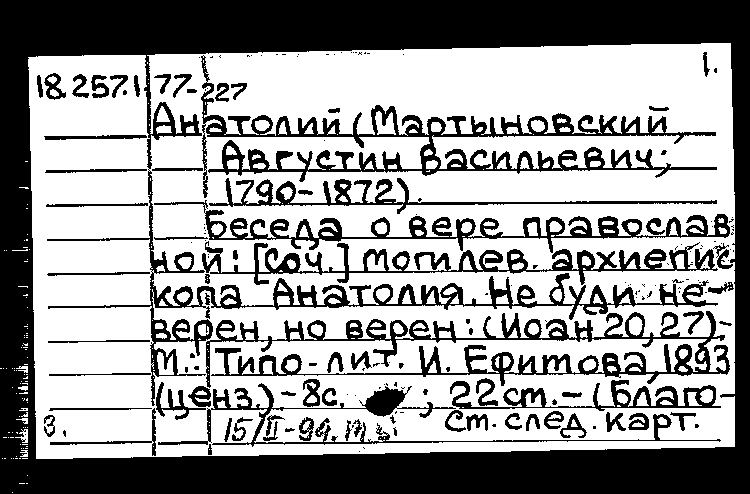 1.
18.257.1.77-227
Анатолий (Мартыновский,
Августин Васильевич;
1790-1872).
Беседа о вере православ
ной: [Соч.] могилев. архиепис
копа Анатолия. Не буди не-
верен, но верен: (Иоан 20,27).-
М.: Типо-лит. И. Ефимова, 1893
(ценз.) - 8с. ; 22 см. - (Благо-
3. 15/II-94. см. след. карт.